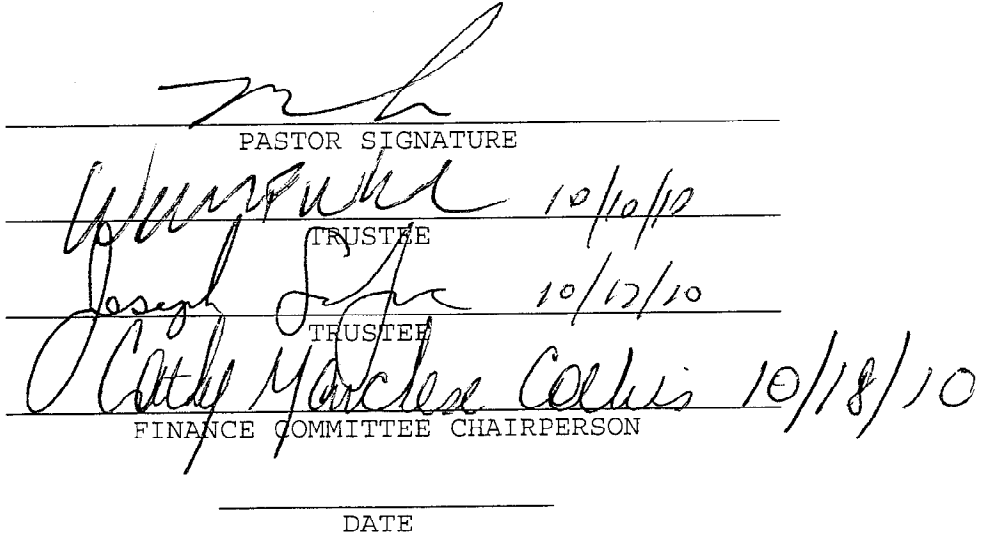 PASTOR SIGNATURE
10/10/10
TRUSTEE
Joseph 10/17/10
TRUSTEE
Cathy Marchese Collins 10/18/10
FINANCE COMMITTEE CHAIRPERSON
DATE